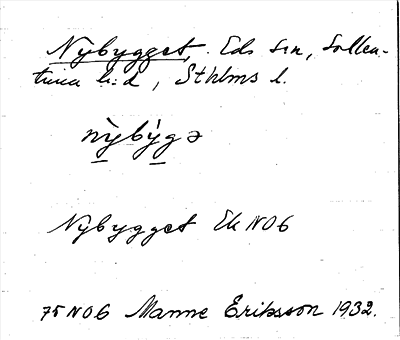 Nybygget, Eds sn, Sollen-
tuna h:d, Sthlms l.
nỳbýgə
Nybygget Ek NO6
75 NO6 Manne Eriksson 1932.